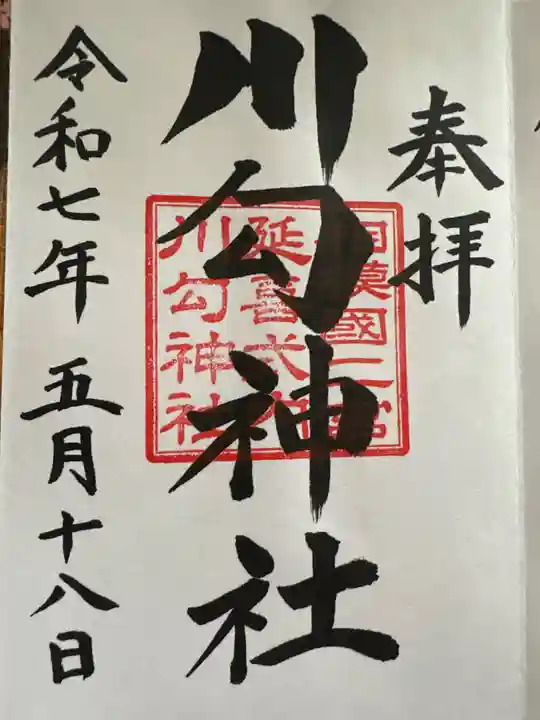 奉拝
川勾神社
相模國二宮
延喜式内
川勾神社
令和七年 五月十八日